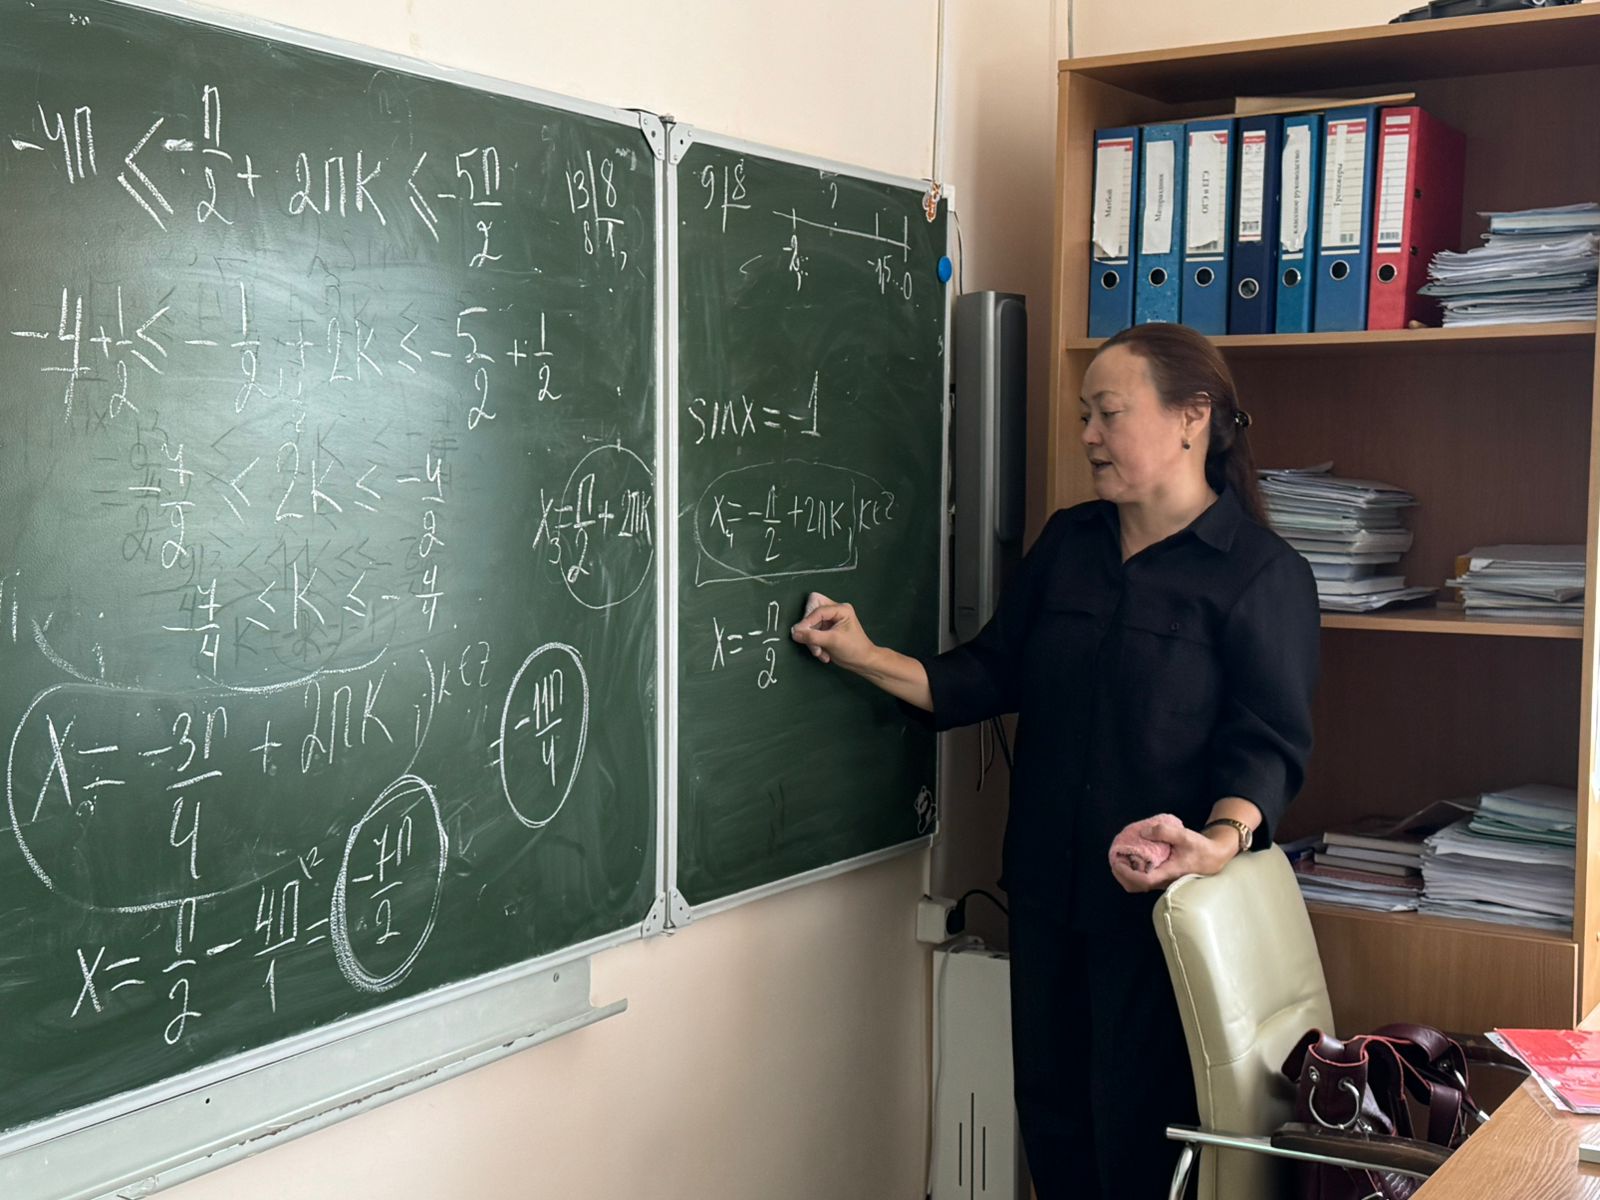 -4π ≤ -π/2 + 2πk ≤ -5π/2
13 | 8
8 | 1,
-4/1 + 1/2 ≤ -1/2 + 2k ≤ -5/2 + 1/2
-7/2 ≤ 2k ≤ -4/2
-7/4 ≤ k ≤ -4/4
x₃ = π/2 + 2πk
x₂ = -3π/4 + 2πk, k∈Z
= -11π/4
x = π/2 - 4π/1 = -7π/2
9 | 8
?
-1,5..
0
sinx = -1
x₄ = -π/2 + 2πk, k∈Z
x = -π/2
Матбой
Матпраздник
ЕГЭ и ОГЭ
классное руководство
Тренажеры